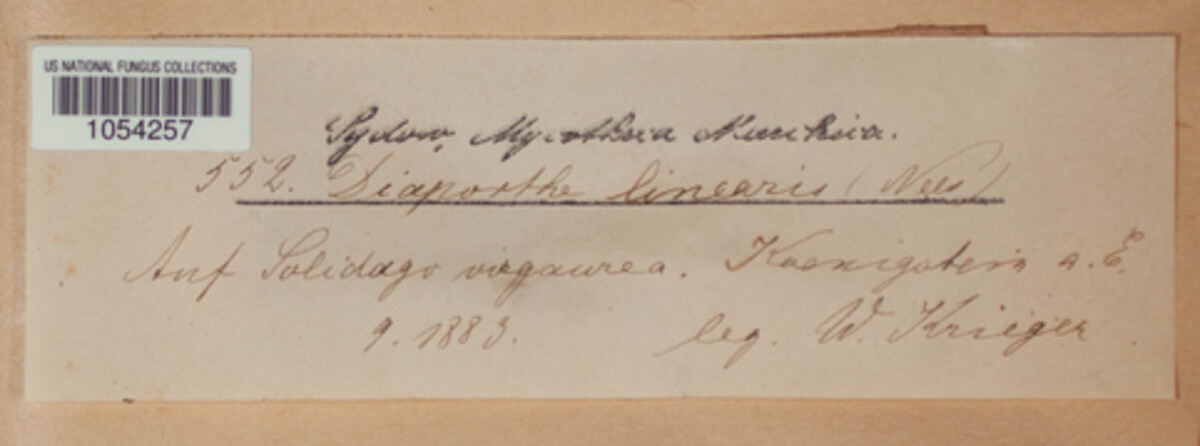 US NATIONAL FUNGUS COLLECTIONS
1054257
Sydow, Mycotheca Marchica.
552. Diaporthe linearis (Nees)
Auf Solidago virgaurea. Koenigstein a. E.
9. 1883. leg. W. Krieger.